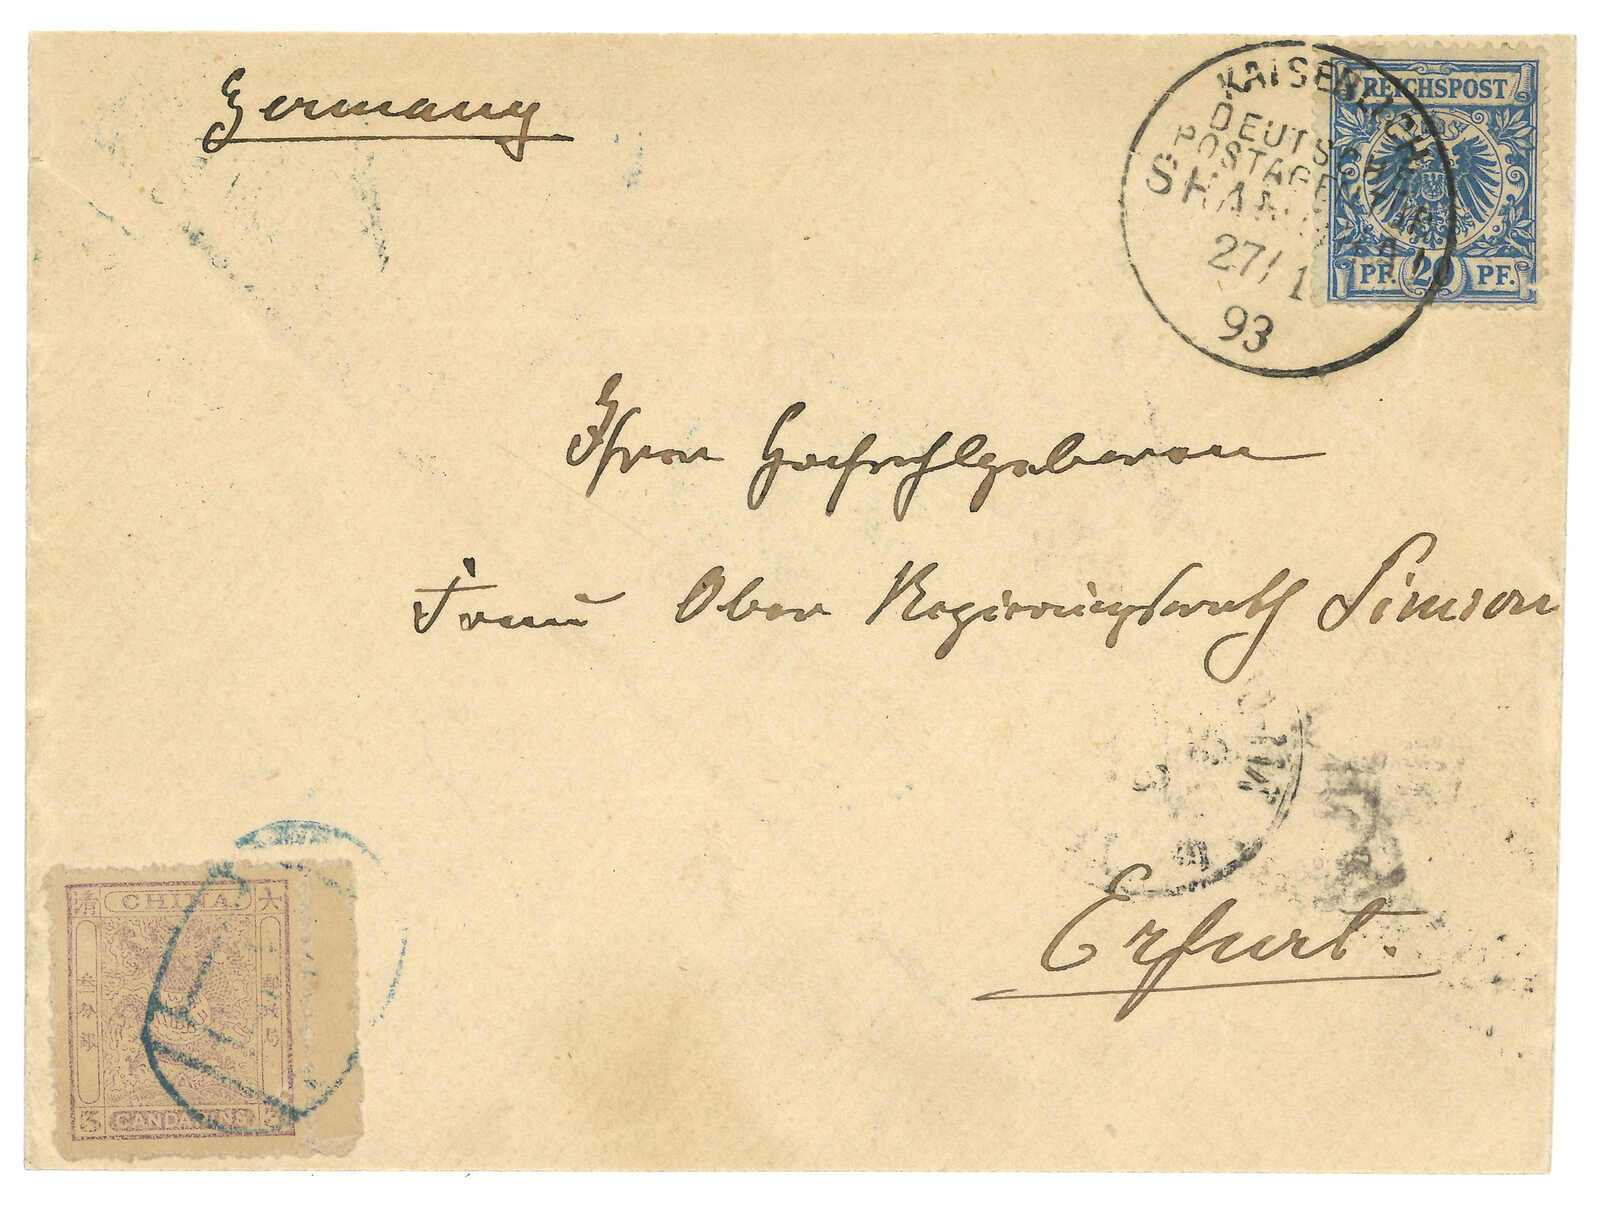 Germany
KAISERLICH
DEUTSCHE
POSTAGENTUR
SHANGHAI
27/1
93
REICHSPOST
PF. 20 PF.
Ihrer Hochwohlgeboren
Frau Ober Regierungsrath Simson
Erfurt.
清 CHINA. 大
叁分銀
郵政局
3 CANDARINS 3